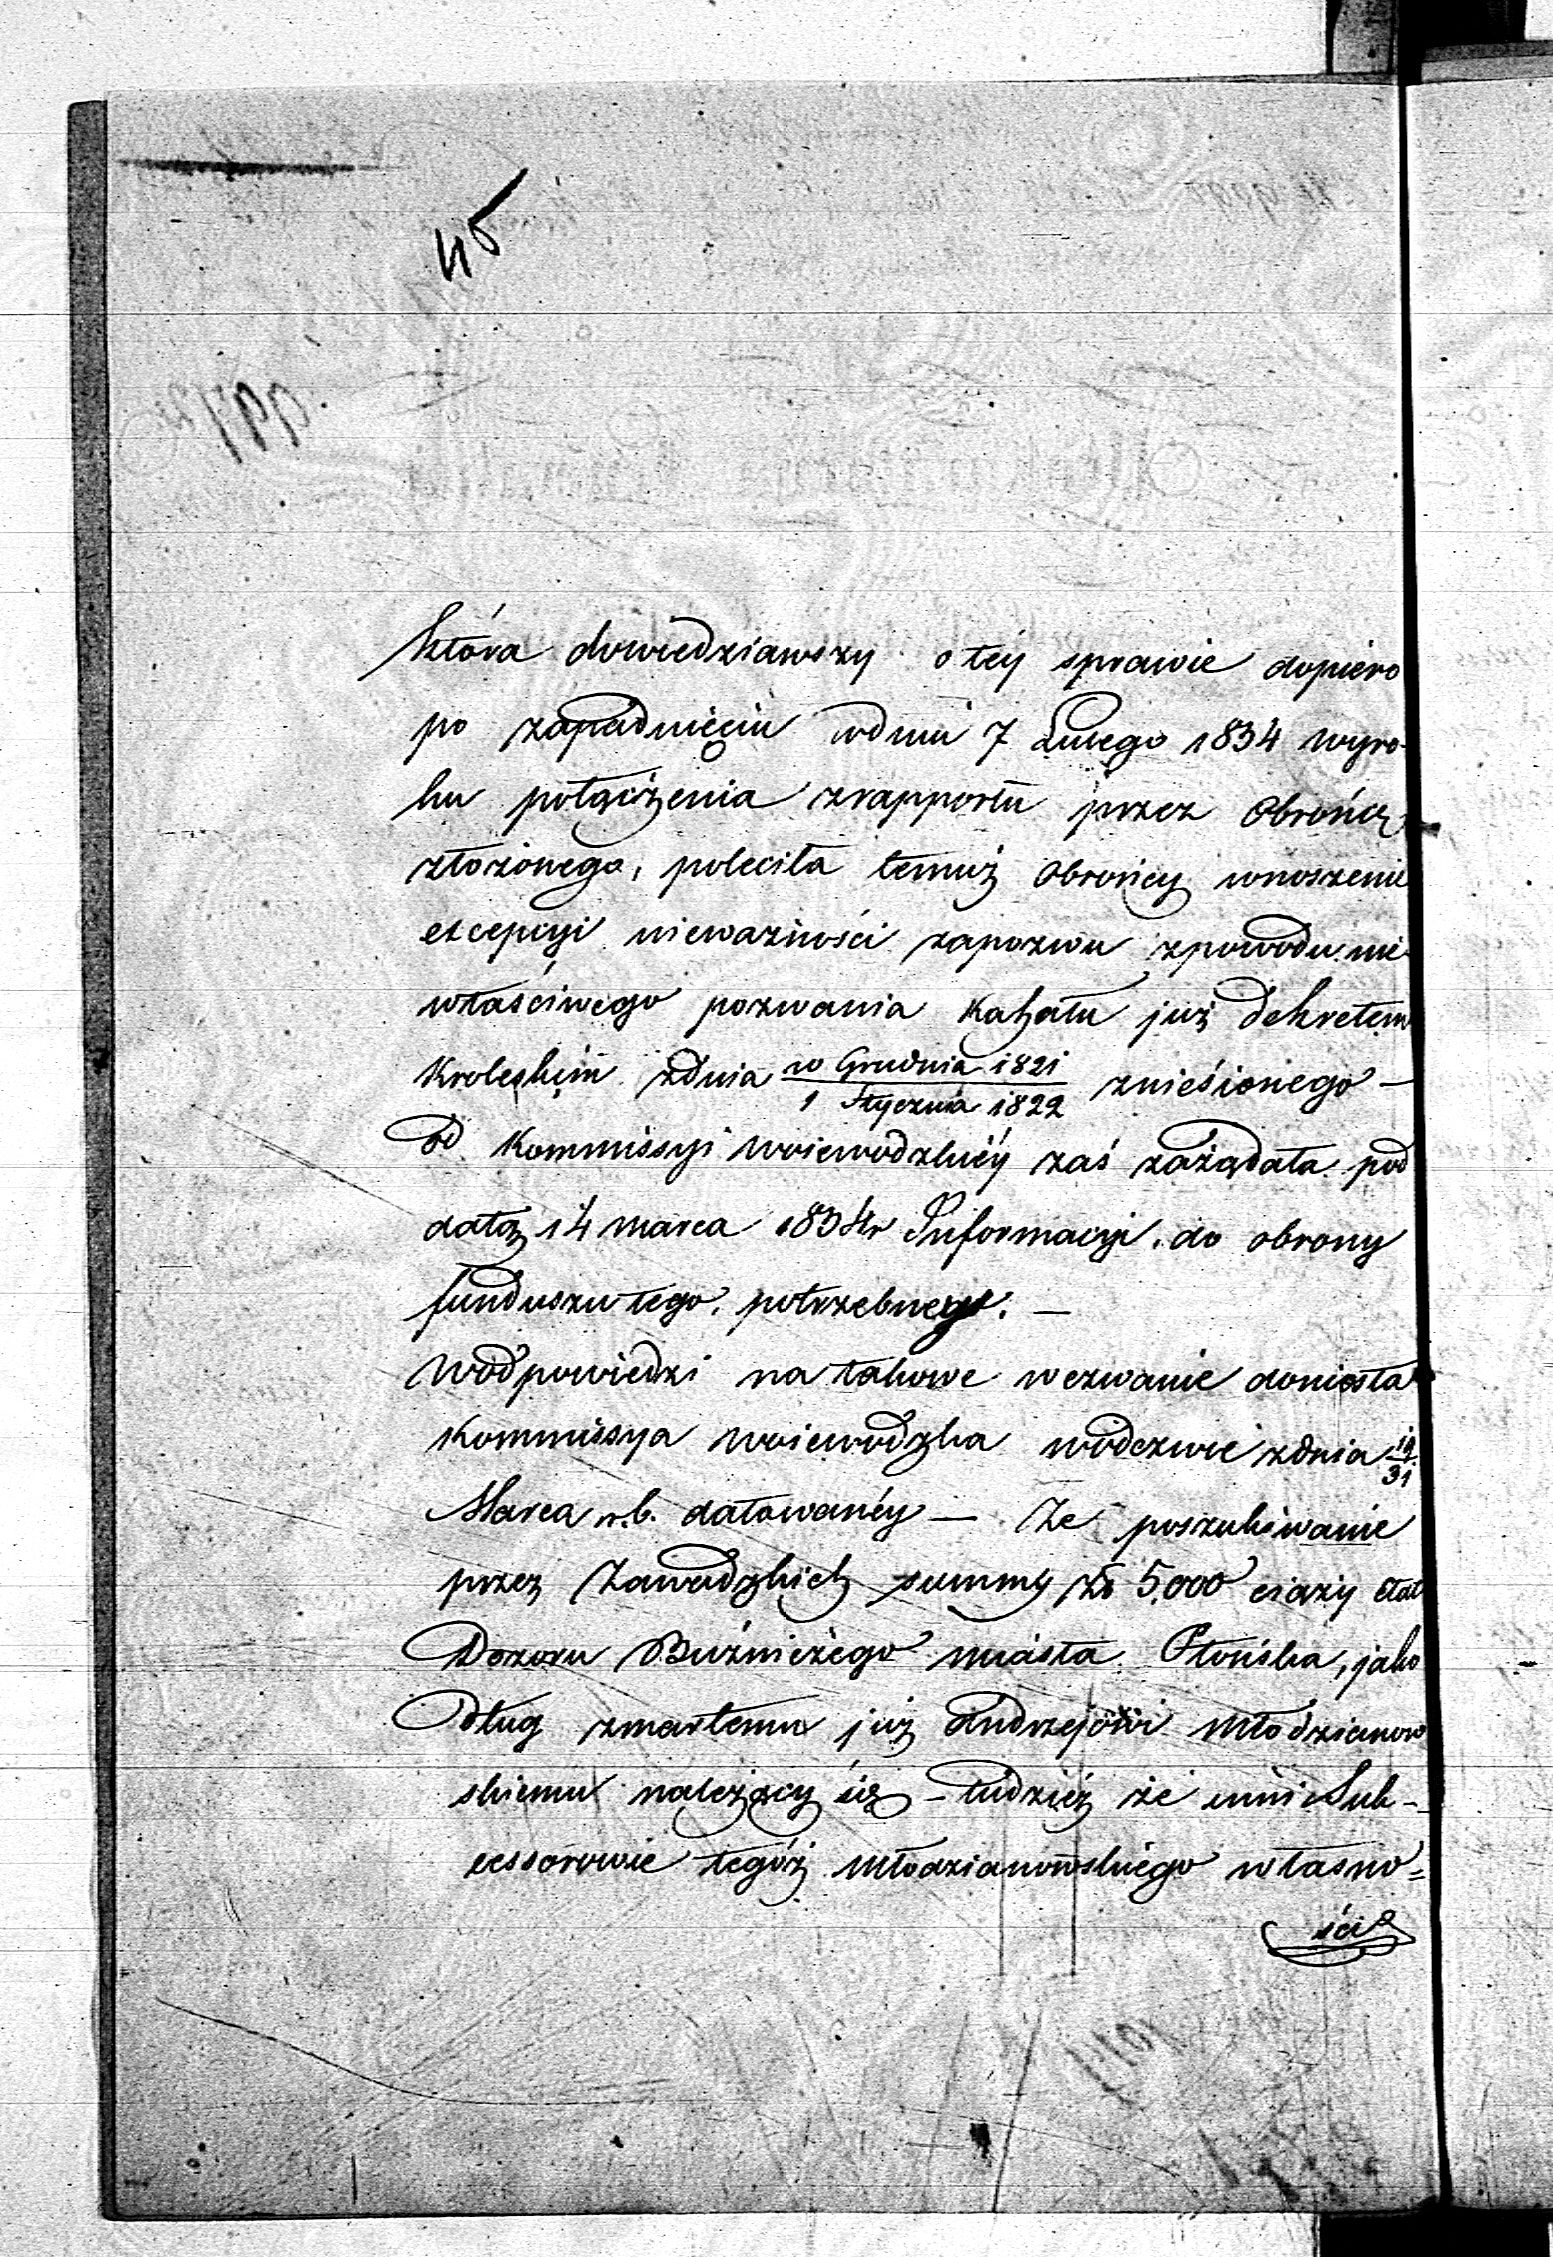 która dowiedziawszy o téy sprawie dopiero
po zapadnięciu wdniu 7 Lutego 1834 wyro-
ku połączenia zrapportu przez Obrońcę
złożonego, poleciła temuż Obrońcy wnoszenie
excepcyi nieważności zapozwu zpowodu nie
właściwego pozwania Kahału już dekretem
Krolęskim zdnia 20 Grudnia 1821 / 1 Stycznia 1822 zniesionego —
od Kommissyi Woiewodzkiéy zaś zażądała pod
datą 14 marca 1834r Informacyi do obrony
funduszu tego, potrzebnego. —
Wodpowiedzi na takowe wezwanie doniosła
Kommissya Woiewodzka wodezwie zdnia 19/31
Marca r.b. datowanéy — Ze poszukiwanie
przez Zawadzkich summy Zł 5,000 ciąży etat
Dozoru Bużniczego miasta Płońska, jako
Dług zmarłemu już Andrzejowi Młodzianow
skiemu należący się — tudzież że inni Suk-
cessorowie tegoż Młodzianowskiego własno=
ści